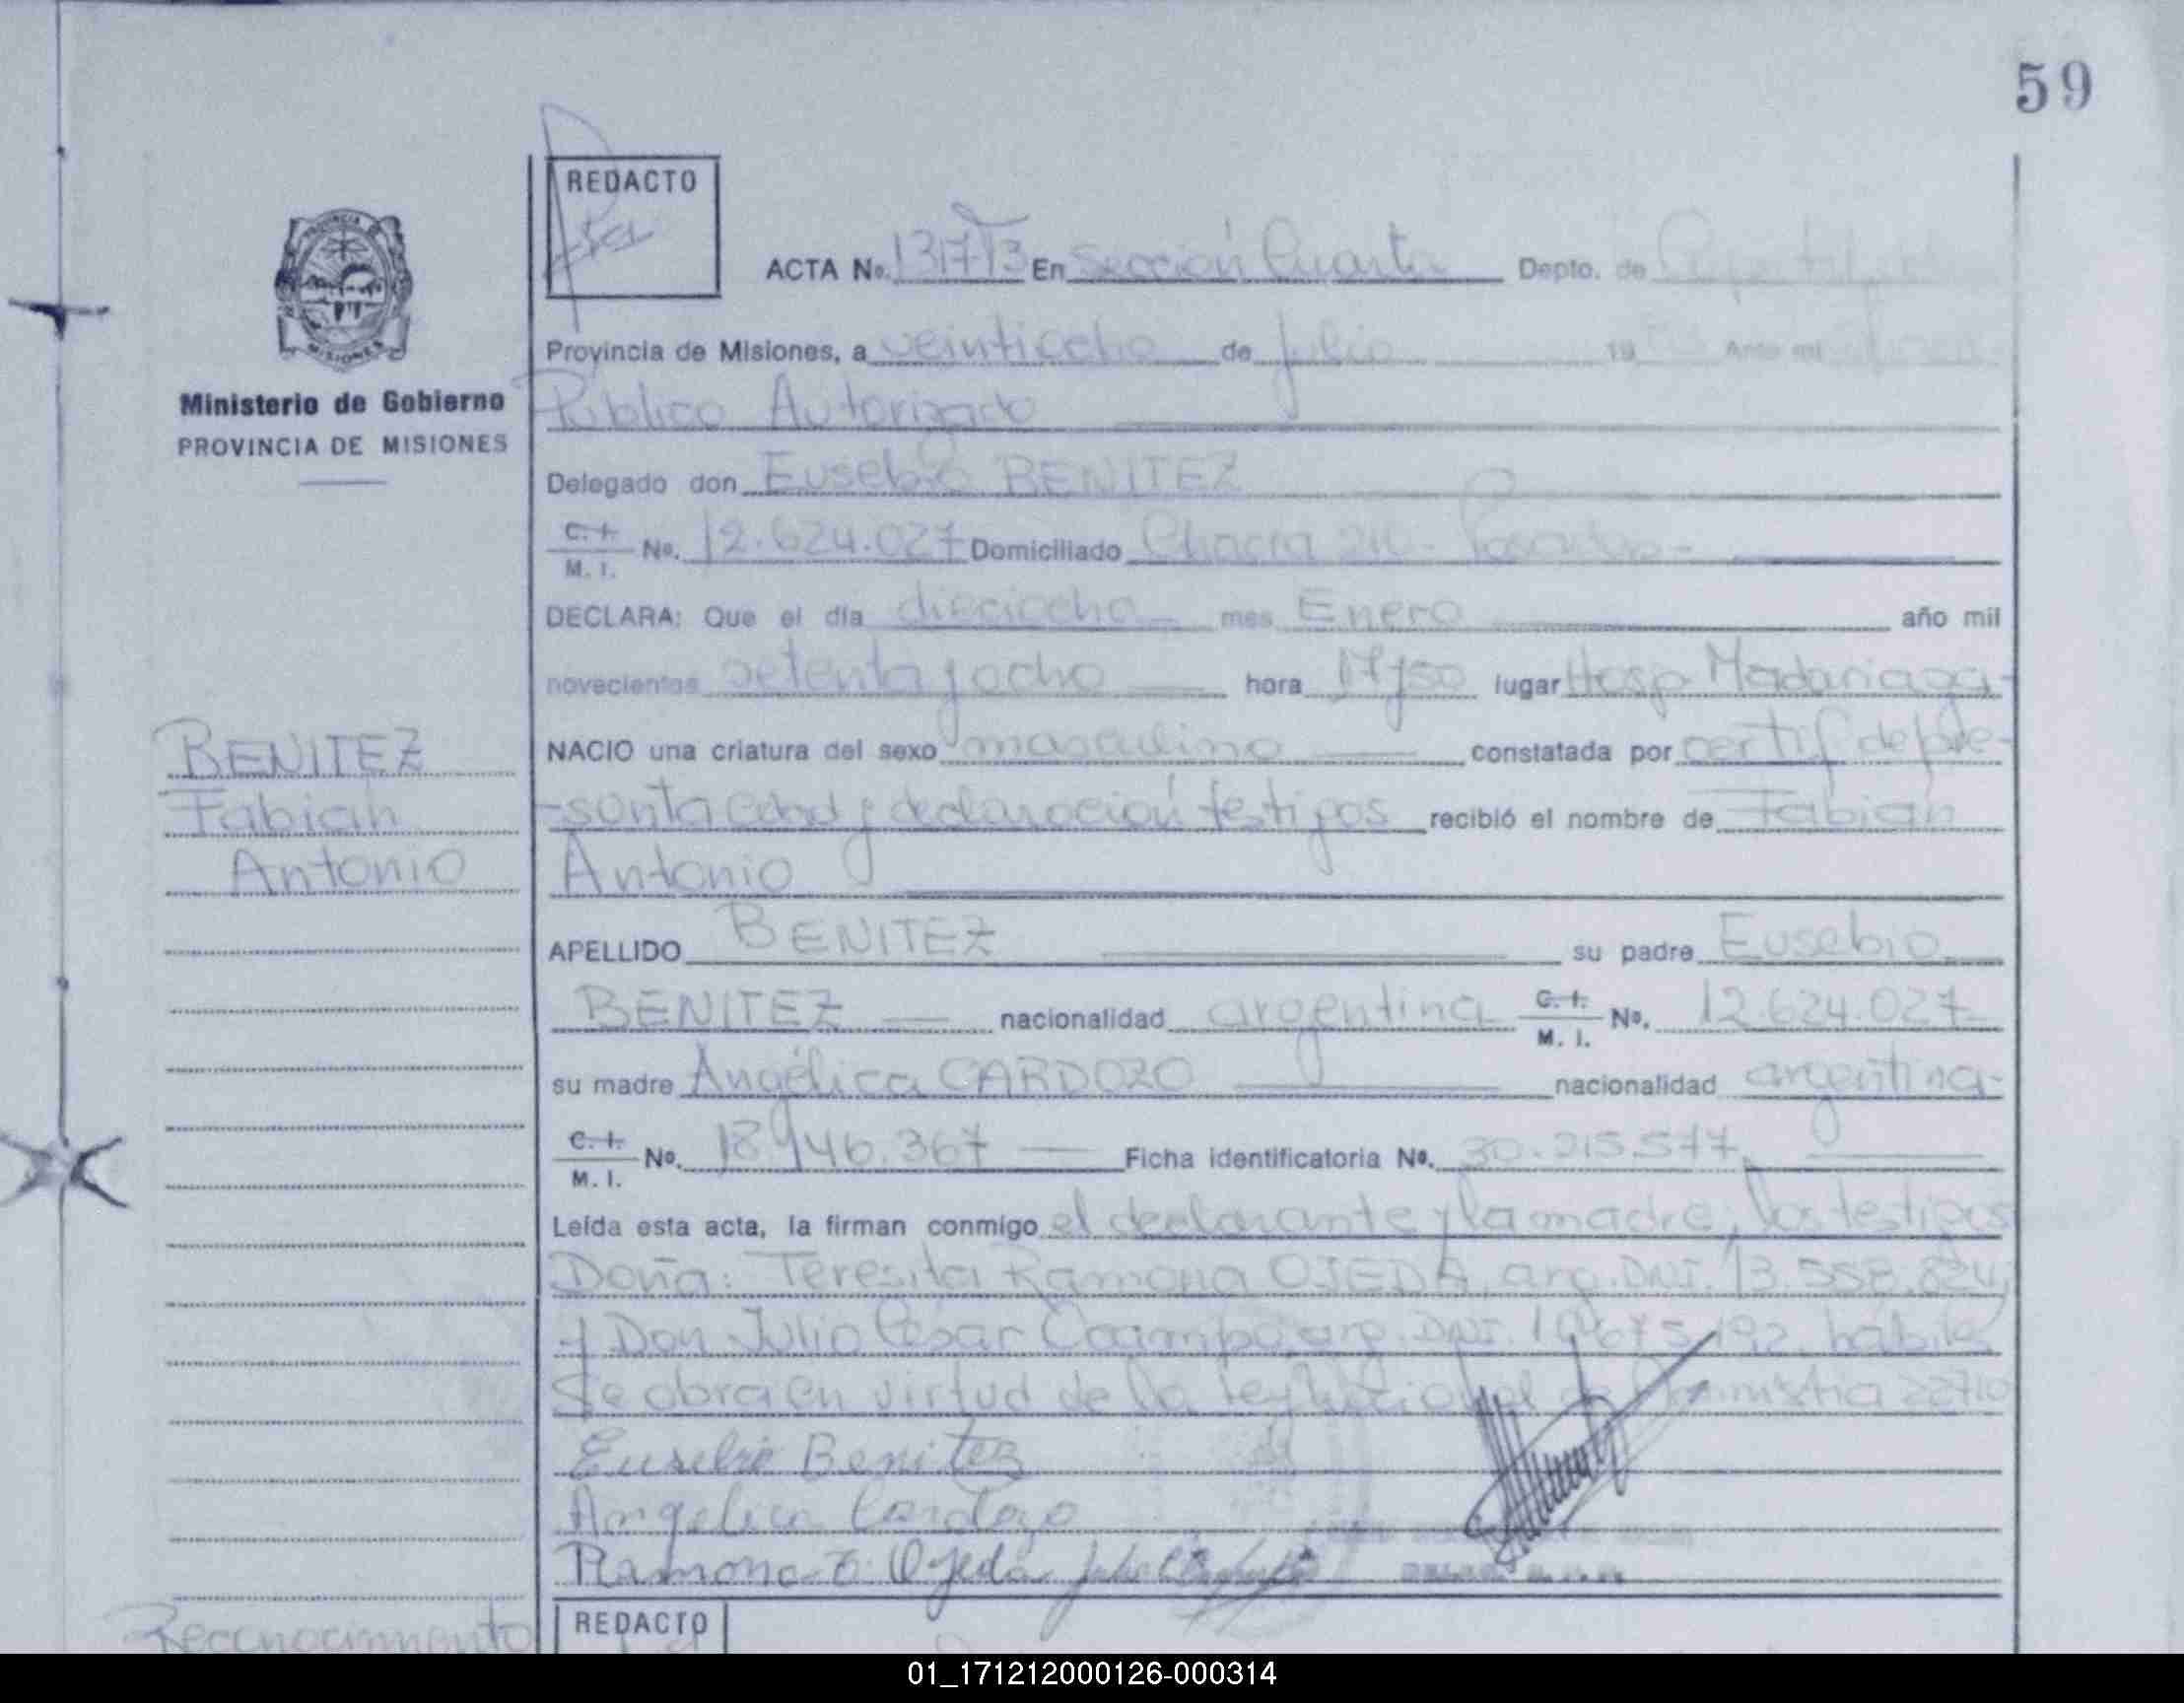 59
REDACTO
ACTA No. En Sección Cuarta Depto. de
Provincia de Misiones, a veintiocho de julio 19 Ante mi
Público Autorizado
Delegado don Eusebio BENITEZ
C. I. M. I. No. 12.624.027 Domiciliado Chacra Posadas-
DECLARA: Que el día dieciocho mes Enero año mil
novecientos setenta y ocho hora 17y50 lugar Hosp Madariaga-
NACIO una criatura del sexo masculino constatada por certif de pre-
-sunta edad y declaración testigos recibió el nombre de Fabián
Antonio
APELLIDO BENITEZ su padre Eusebio
BENITEZ nacionalidad argentina C. I. M. I. No. 12.624.027
su madre Angélica CARDOZO nacionalidad argentina-
C. I. M. I. No. 18.946.367 Ficha identificatoria No. 30.215.577
Leída esta acta, la firman conmigo el declarante y la madre; los testigos
Doña: Teresita Ramona OJEDA, arg. DNI. 13.558.824,
y Don Julio César Ocampo, arg. DNI. hábiles
Se obra en virtud de la ley Nacional de Amnistia 22710
Eusebio Benitez
Angelica Cardozo
Ramona T. Ojeda
REDACTO
Ministerio de Gobierno
PROVINCIA DE MISIONES
BENITEZ
Fabián
Antonio
Reconocimiento
01_171212000126-000314